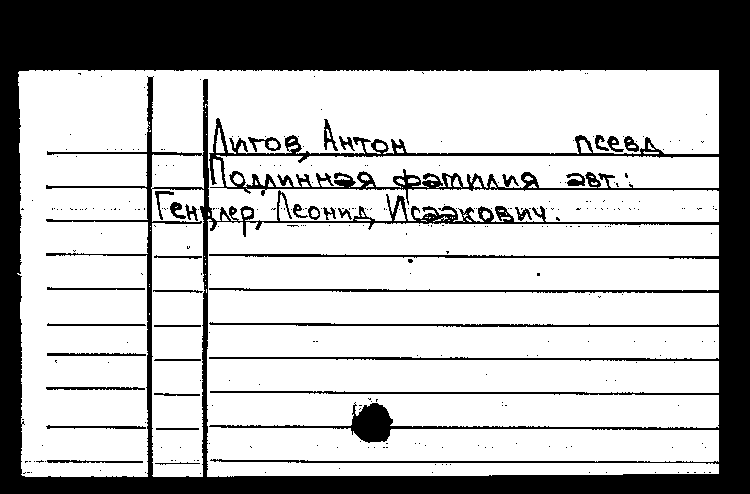 Лигов, Антон псевд.
Подлинная фамилия авт.:
Генцлер, Леонид Исаакович.